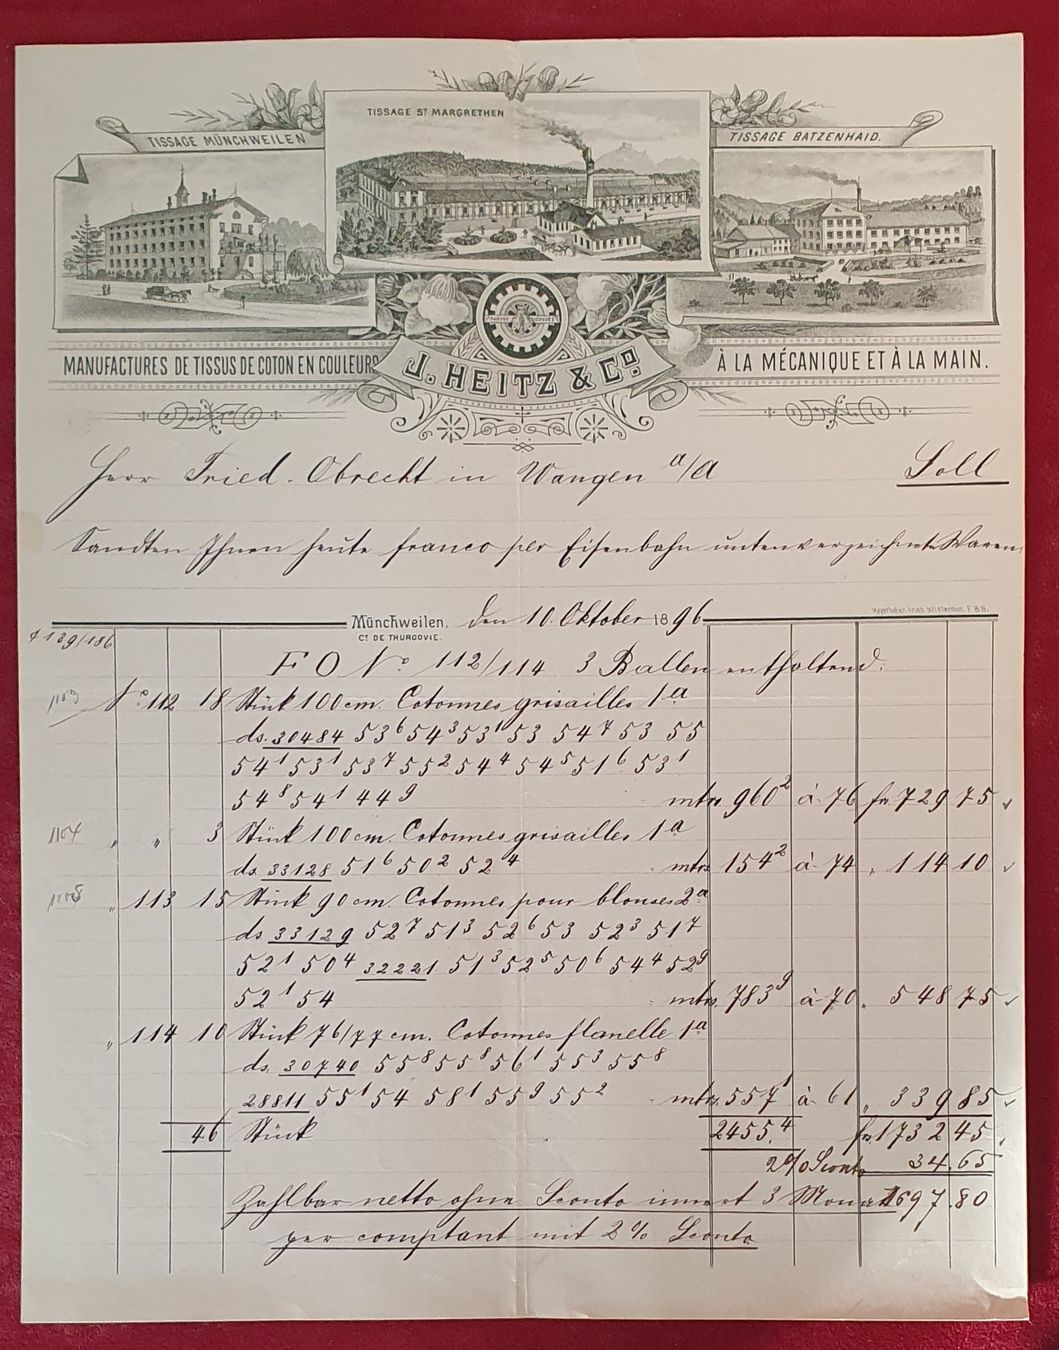 TISSAGE MÜNCHWEILEN
TISSAGE ST MARGRETHEN
TISSAGE BATZENHAID.
MANUFACTURES DE TISSUS DE COTON EN COULEURS
J. HEITZ & Co.
À LA MÉCANIQUE ET À LA MAIN.
Herr Fried. Obrecht in Wangen a/A Soll
Sandten Ihnen heute franco per Eisenbahn untenverzeichnete Waren
Münchweilen, den 10. Oktober 1896
CT. DE THURGOVIE.
139/186
F O No 112/114 3 Ballen enthaltend:
1103 No 112 18 Stück 100 cm. Cotonnes grisailles 1a
ds. 30484 53⁶ 54³ 53¹ 53 54⁷ 53 55
54¹ 53¹ 53⁷ 55² 54⁴ 54⁵ 51⁶ 53¹
54⁸ 54¹ 44⁹ mtrs. 960² à 76 fr 729 75
1104 " " 3 Stück 100 cm. Cotonnes grisailles 1a
ds. 33128 51⁶ 50² 52⁴ mtrs 154² à 74 " 114 10
1105 " 113 15 Stück 90 cm. Cotonnes pour blouses 2a
ds. 33129 52⁷ 51³ 52⁶ 53 52³ 51⁷
52¹ 50⁴ 32221 51³ 52⁵ 50⁶ 54⁴ 52⁹
52¹ 54 mtrs. 783⁹ à 70 " 548 75
" 114 10 Stück 76/77 cm. Cotonnes flanelle 1a
ds. 30740 55⁸ 55⁸ 56¹ 55³ 55⁸
28811 55¹ 54 58¹ 55⁹ 55² mtrs. 557¹ à 61 " 339 85
46 Stück 2455.4 fr. 1732 45
2% Sconto 34.65
Zahlbar netto ohne Sconto innert 3 Monat 1697.80
per comptant mit 2% Sconto